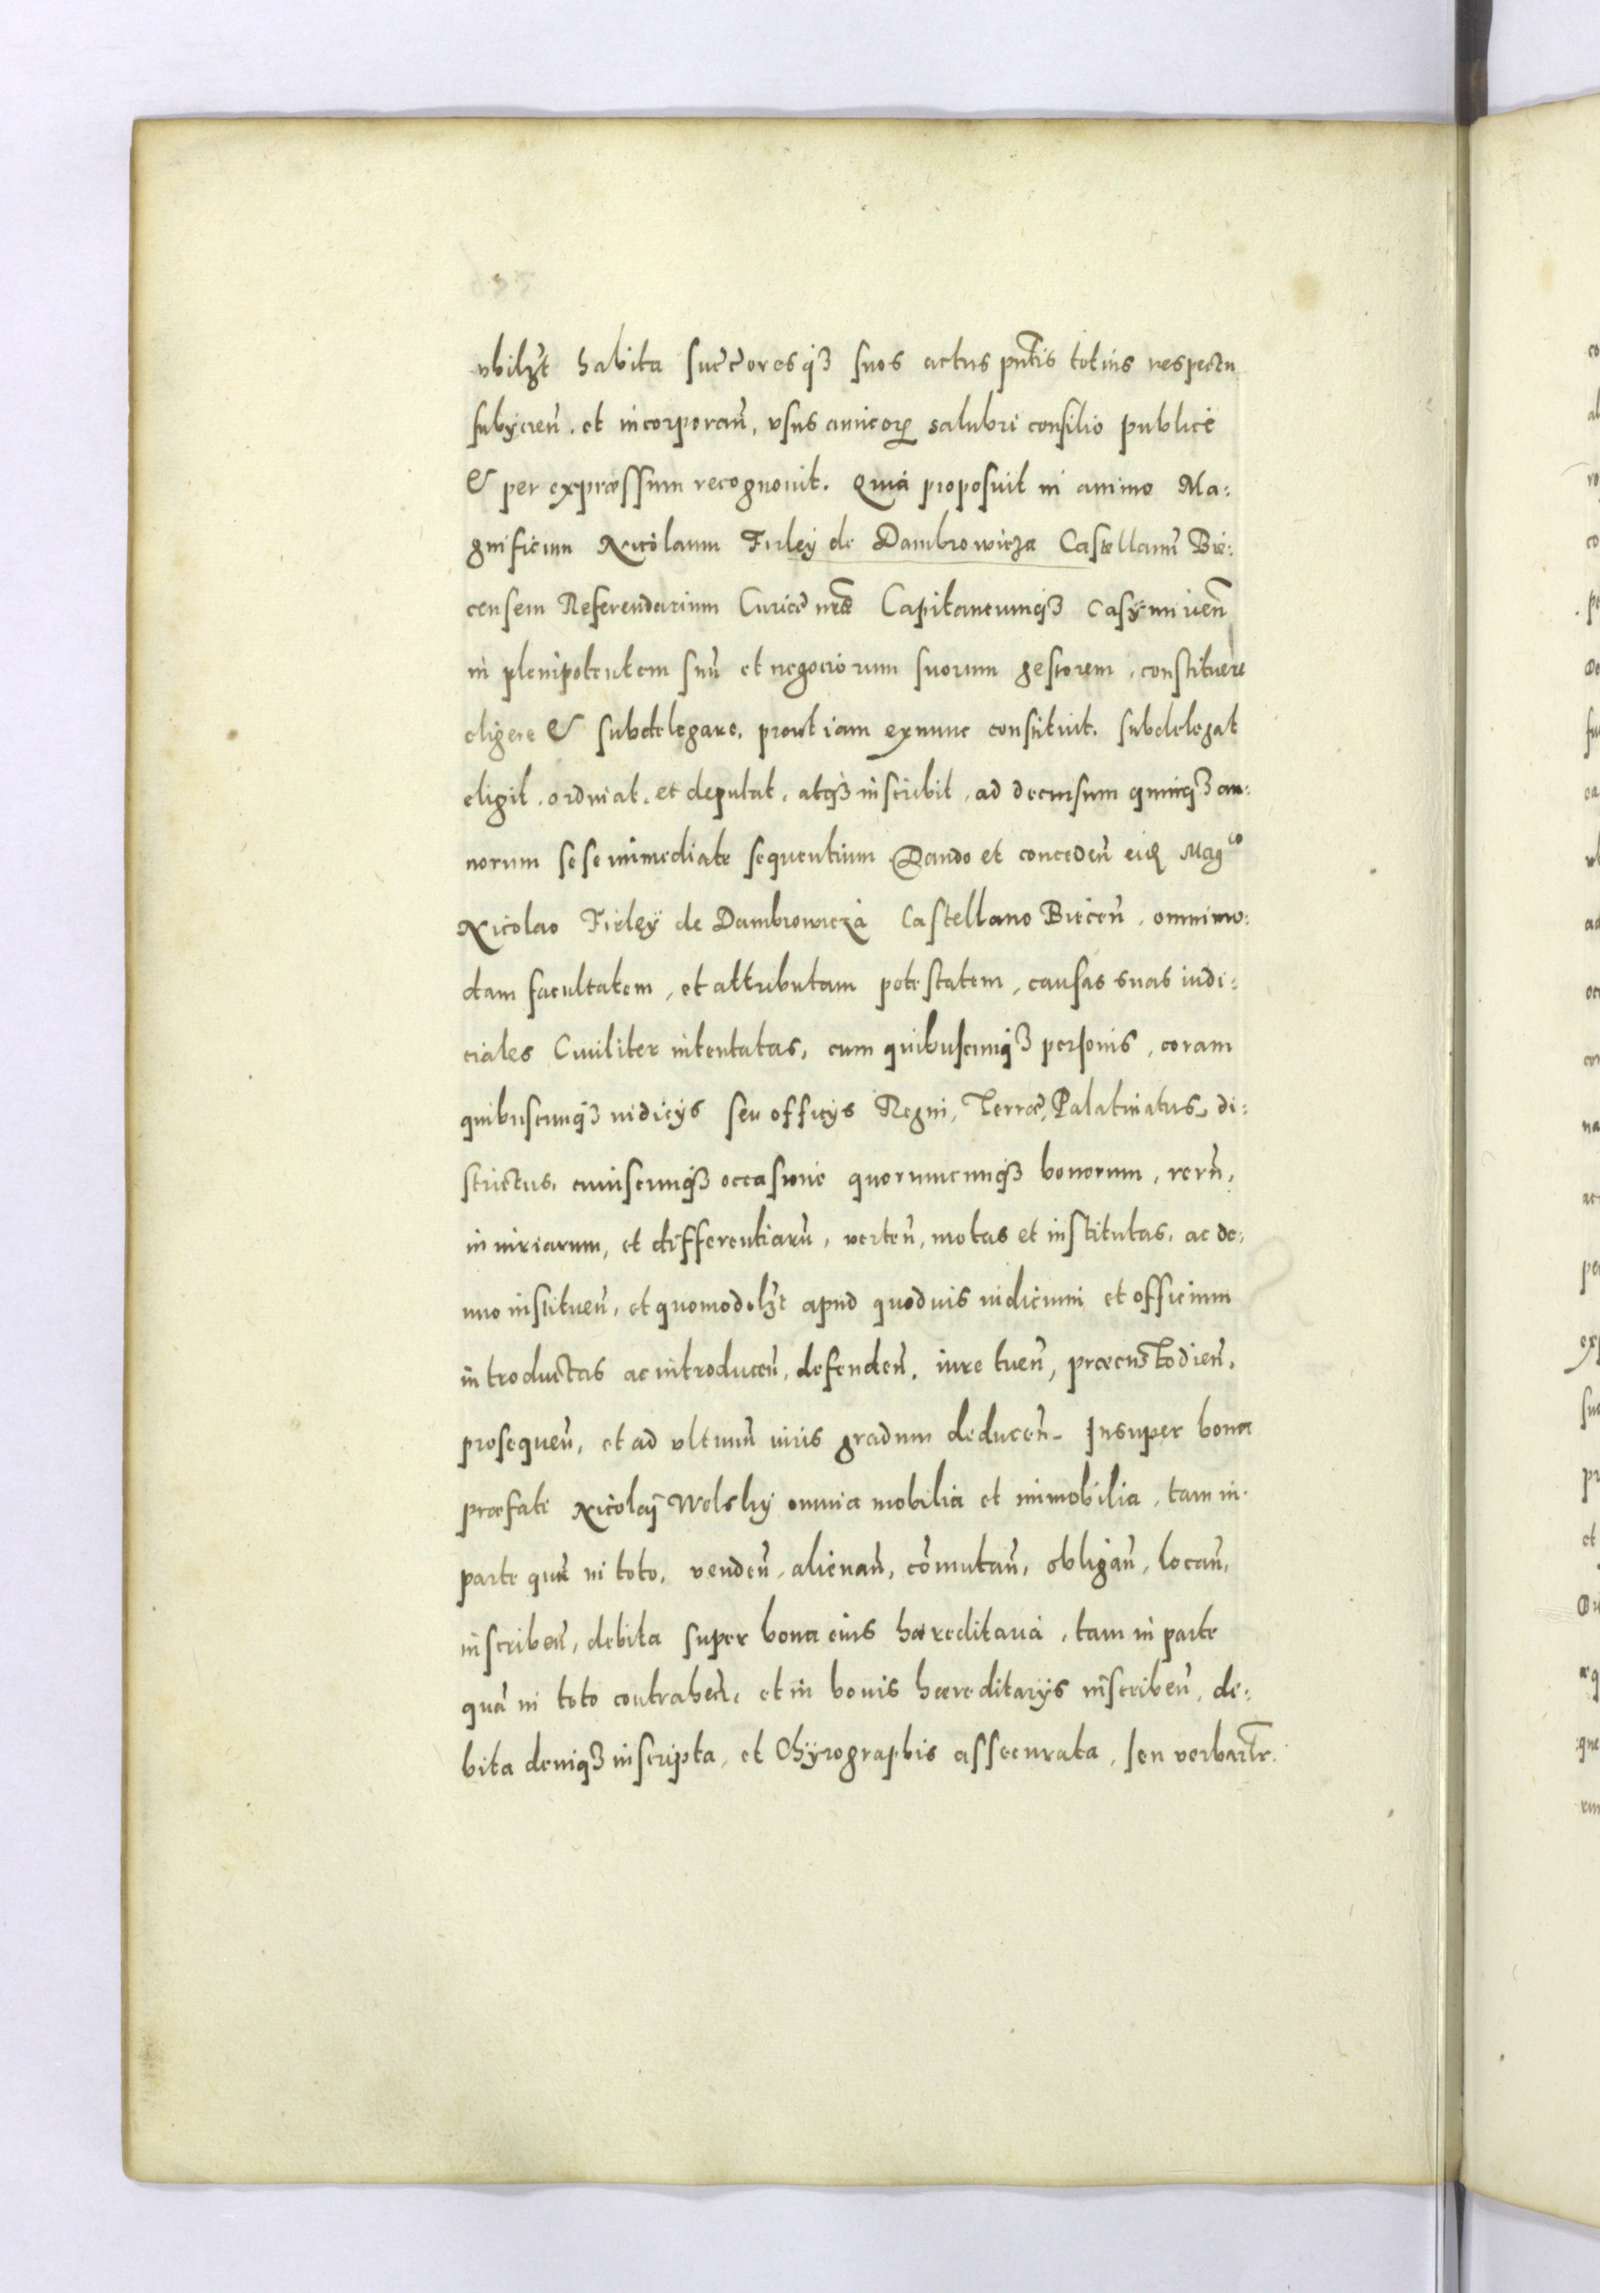 vbilꝫt habita succoresqꝫ suos actus pn̄tis totius respectu
subÿcien̄. et incorporan̄, vsus amicorꝝ salubri consilio publicè
& per expræssum recognouit. Quia proposuit in animo Ma:
gnificum Nicolaum Firleÿ de Dambrowicza Castellanū Bie:
censem Referendarium Curiæ nr̄æ Capitaneumqꝫ Casÿmirien̄
in plenipotentem suū et negociorum suorum gestorem, constituere
eligere & subdelegare, prout iam exnunc constituit. subdelegat
eligit, ordinat, et deputat, atqꝫ inscribit, ad decursum quinqꝫ an:
norum sese immediate sequentium Dando et conceden̄ eidē Magco
Nicolao Firleÿ de Dambrowicza Castellano Biecen̄, omnimo:
dam facultatem, et attributam potestatem, causas suas iudi:
ciales Ciuiliter intentatas, cum quibuscunqꝫ personis, coram
quibuscunqꝫ iudicÿs seu officÿs Regni, Terræ, Palatinatus, di:
strictus, cuiuscunqꝫ occasione quorumcunqꝫ bonorum, rerū,
iniuriarum, et differentiarū, verten̄, motas et institutas, ac de:
nuo instituen̄, et quomodolꝫt apud quoduis iudicium et officium
introductas ac introducen̄, defenden̄, iure tuen̄, præcustodien̄,
prosequen̄, et ad vltimū iuris gradum deducen̄. Insuper bona
præfati Nicolaÿ Wolskÿ omnia mobilia et immobilia, tam in
parte quā in toto, venden̄, alienan̄, cōmutan̄, obligan̄, locan̄,
inscriben̄, debita super bona eius hæreditaria, tam in parte
quā in toto contrahen̄, et in bonis hæreditarÿs inscriben̄, de:
bita deniqꝫ inscripta, et Chÿrographis assecurata, seu verbartr̄.